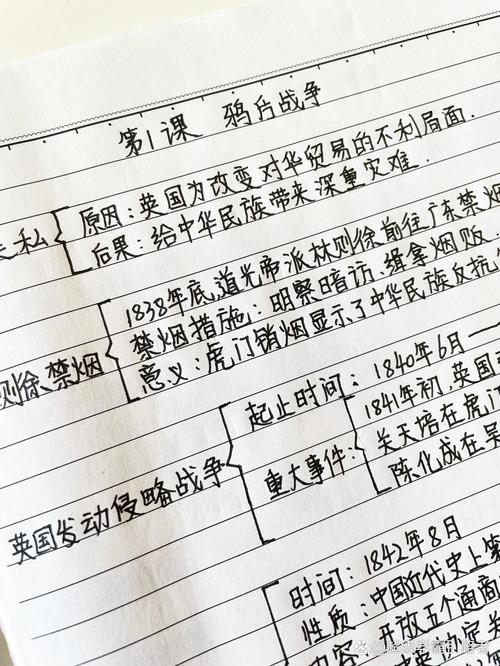 第1课 鸦片战争
走私
原因：英国为改变对华贸易的不利局面.
后果：给中华民族带来深重灾难.
则徐禁烟
1838年底,道光帝派林则徐前往广东禁烟
禁烟措施：明察暗访、缉拿烟贩、
意义：虎门销烟显示了中华民族反抗
英国发动侵略战争
起止时间：1840年6月—
重大事件：
1841年初,英国
关天培在虎门
陈化成在吴
时间：1842年8月
性质：中国近代史上第
内容：开放五个通商